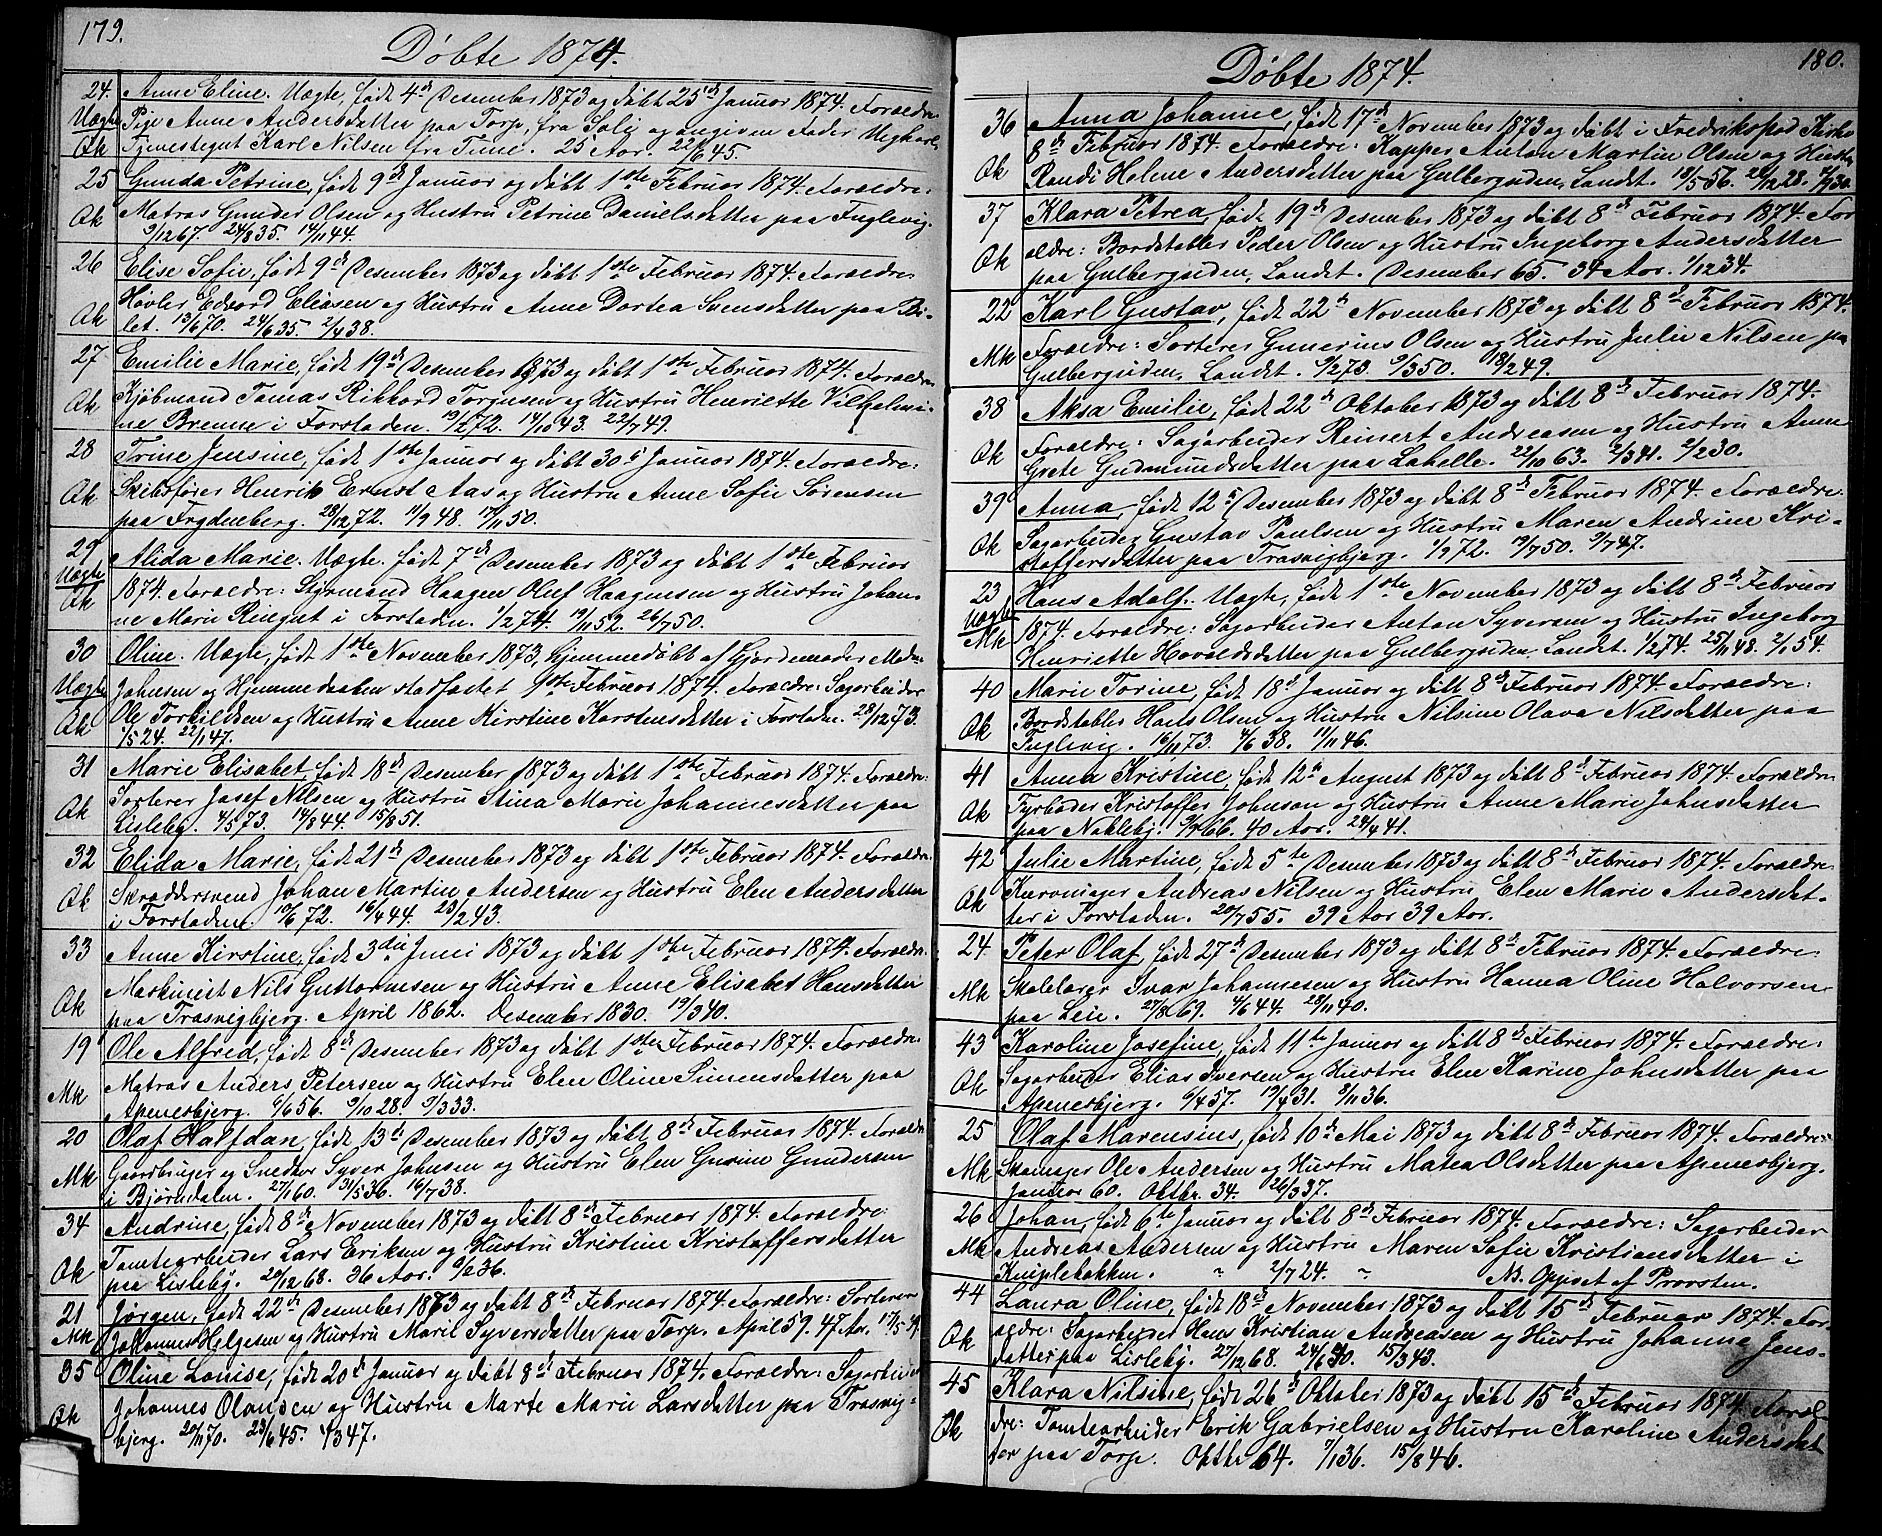 179.
Døbte 1874.
24. Anne Eline. Uægte, født 4de Desember 1873 og døbt 25de Januar 1874. Forældre
Uægte Pige Anne Andersdatter paa Torp, fra Solig og angiven Fader Ungkarl
Qk Tjenestegut Karl Nilsen fra Tune. 25 Aar. 22/6 45.
25 Gunda Petrine, født 9de Januar og døbt 1ste Februar 1874. Forældre:
Qk Matros Gunder Olsen og Hustru Petrine Danielsdatter paa Fuglevig.
9/12 67. 24/8 35. 14/1 44.
26 Elise Sofie, født 9de Desember 1873 og døbt 1ste Februar 1874. Forældre
Høvler Edvard Eliasen og Hustru Anne Dortea Svensdatter paa Bi-
Qk let. 13/6 70. 24/6 35. 2/4 38.
27 Emilie Marie, født 19de Desember 1873 og døbt 1ste Februar 1874. Forældre
Qk Kjøbmand Tomas Rikhard Torgusen og Hustru Henriette Vilhelmi-
ne Brenne i Forstaden. 19/2 72. 14/10 43. 22/7 49.
28 Trine Jensine, født 1ste Januar og døbt 30te Januar 1874. Forældre:
Qk Skibsfører Henrik Ernst Aas og Hustru Anne Sofie Sørensen
paa Frydenberg. 28/12 72. 11/9 48. 17/11 50.
29 Alida Marie. Uægte. født 7de Desember 1873 og døbt 1ste Februar
Uægte 1874. Forældre: Styrmand Haagen Oluf Haagensen og Hustru Johan-
Qk ne Marie Ringut i Forstaden. 1/2 74. 19/11 52. 26/7 50.
30 Oline. Uægte, født 1ste November 1873, hjemmedøbt af Gjordemoder Mad.
Uægte Johnsen og Hjemmedaaben stadfæstet 1ste Februar 1874. Forældre: Sagarbeider
Qk Ole Torkildsen og Hustru Anne Kirstine Karstensdatter i Forstaden. 28/12 73.
1/5 24. 22/1 47.
31 Marie Elisabet, født 18de Desember 1873 og døbt 1ste Februar 1874. Forældre:
Qk Sorterer Josef Nilsen og Hustru Stina Marie Johannesdatter paa
Lisleby. 4/5 73. 14/8 44. 15/8 51.
32 Elida Marie, født 21de Desember 1873 og døbt 1ste Februar 1874. Forældre:
Qk Skræddersvend Johan Martin Andersen og Hustru Elen Andersdatter
i Forstaden. 10/6 72. 16/4 44. 23/2 43.
33 Anne Kirstine, født 3die Juni 1873 og døbt 1ste Februar 1874. Forældre:
Qk Maskinist Nils Guttormsen og Hustru Anne Elisabet Hansdatter
paa Trasvigbjerg. April 1862. Desember 1830. 19/3 40.
19 Ole Alfred, født 8de Desember 1873 og døbt 1ste Februar 1874. Forældre:
Mk Matros Anders Petersen og Hustru Elen Oline Simensdatter paa
Apenesbjerg. 6/6 56. 9/10 28. 9/3 33.
20 Olaf Halfdan, født 13de Desember 1873 og døbt 8de Februar 1874. Forældre
Mk Gaardbruger og Snedker Syver Johnsen og Hustru Elen Gurine Gundersen
i Bjørndalen. 27/1 60. 31/5 36. 16/7 38.
34 Andrine, født 8de November 1873 og døbt 8de Februar 1874. Forældre:
Qk Tomtearbeider Lars Eriksen og Hustru Kristine Kristoffersdatter
paa Lisleby. 20/12 68. 36 Aar. 9/2 36.
21 Jørgen, født 22de Desember 1873 og døbt 8de Februar 1874. Forældre: Sorterer
Mk Johannes Helgesen og Hustru Maril Syversdatter paa Torp. April 59. 47 Aar. 17/5 39.
35 Oline Louise, født 20de Januar og døbt 8de Februar 1874. Forældre: Sagarbeider
Qk Johannes Olaussen og Hustru Marte Marie Larsdatter paa Trasvig-
bjerg. 20/11 70. 23/6 45. 4/3 47.
180.
Døbte 1874.
36 Anna Johanne, født 17de November 1873 og døbt i Fredrikstad Kirke
8de Februar 1874. Forældre: Kapper Anton Martin Olsen og Hustru
Qk Randi Helene Andersdatter paa Gulbergsiden, Landet. 18/5 56. 28/12 28. 30.
37 Klara Petrea, født 19de Desember 1873 og døbt 8de Februar 1874. For-
Qk ældre: Bordstabler Peder Olsen og Hustru Ingeborg Andersdatter
paa Gulbergsiden, Landet. Desember 65. 34 Aar. 1/12 34.
22 Karl Gustav, født 22de November 1873 og døbt 8de Februar 1874.
Mk Forældre: Sorterer Gunerius Olsen og Hustru Julie Nilsen paa
Gulbergsiden, Landet. 9/2 73. 9/3 50. 18/2 49.
38 Aksa Emilie, født 22de Oktober 1873 og døbt 8de Februar 1874.
Qk Forældre: Sagarbeider Reinert Andreasen og Hustru Anne
Grete Gudmundsdatter paa Lahelle. 22/10 63. 2/3 41. 2/2 30.
39 Anna, født 12te Desember 1873 og døbt 8de Februar 1874. Forældre:
Qk Sagarbeider Gustav Paulsen og Hustru Maren Andrine Kri-
stoffersdatter paa Trasvigbjerg. 1/9 72. 19/7 50. 9/7 47.
23 Hans Adolf. Uægte, født 1ste November 1873 og døbt 8de Februar
Uægte 1874. Forældre: Sagarbeider Anton Syversen og Hustru Ingeborg
Mk Henriette Haraldsdatter paa Gulbergsiden, Landet. 1/2 74. 25/11 48. 2/1 54.
40 Marie Torine, født 18de Januar og døbt 8de Februar 1874. Forældre:
Qk Bordstabler Hans Olsen og Hustru Nilsine Olava Nilsdatter paa
Fuglevig. 16/11 73. 4/6 38. 11/11 46.
41 Anna Kristine, født 12te August 1873 og døbt 8de Februar 1874. Forældre
Qk Fyrbøder Kristoffer Johnson og Hustru Anne Marie Johnsdatter
paa Nøkleby. 3/9 66. 40 Aar. 24/4 41.
42 Julie Martine, født 5te Desember 1873 og døbt 8de Februar 1874. Forældre:
Qk Kurvmager Andreas Nilsen og Hustru Elen Marie Andersdat-
ter i Forstaden. 20/7 55. 39 Aar 39 Aar.
24. Peter Olaf, født 27de Desember 1873 og døbt 8de Februar 1874. Forældre:
Mk Skolelærer Ivar Johannesen og Hustru Hanna Oline Halvorsen
paa Leie. 27/8 69. 4/6 44. 28/11 40.
43 Karoline Josefine, født 11te Januar og døbt 8de Februar 1874. Forældre:
Qk Sagarbeider Elias Iversen og Hustru Elen Karine Johnsdatter paa
Apenesbjerg. 6/4 57. 19/4 31. 8/11 36.
25 Olaf Marensius, født 10de Mai 1873 og døbt 8de Februar 1874. Forældre:
Mk Skomager Ole Andersen og Hustru Matea Olsdatter paa Apenesbjerg.
Januar 60. Oktbr. 34. 26/3 37.
26 Johan, født 6te Januar og døbt 8de Februar 1874. Forældre: Sagarbeider
Mk Andreas Andersen og Hustru Maren Sofie Kristiansdatter i
Kniplebakken. " 2/7 24. " NB. Opgivet af Provsten.
44 Laura Oline, født 18de November 1873 og døbt 15de Februar 1874. For-
Qk ældre: Sagarbeider Hans Kristian Andreasen og Hustru Johanne Jens-
datter paa Lisleby. 27/12 68. 24/6 40. 15/3 43.
45 Klara Nilsine, født 26de Oktober 1873 og døbt 15de Februar 1874. Foræl-
Qk dre: Tomtearbeider Erik Gabrielsen og Hustru Karoline Andersdat
ter paa Torp. Oktbr 64. 7/1 36. 15/8 46.